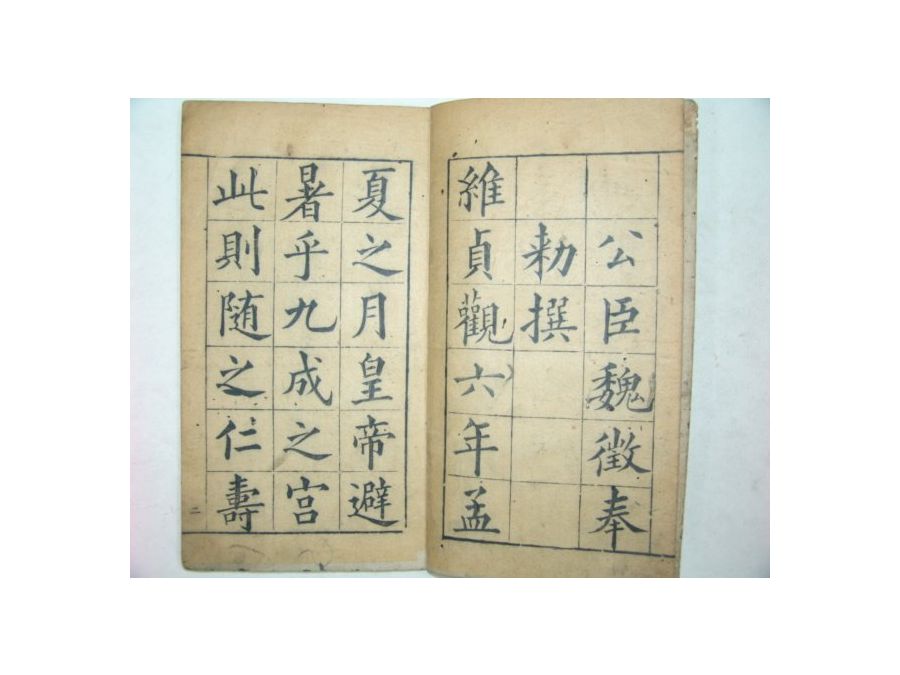 公臣魏徵奉
勑撰
維貞觀六年孟
夏之月皇帝避
暑乎九成之宮
此則随之仁壽
二